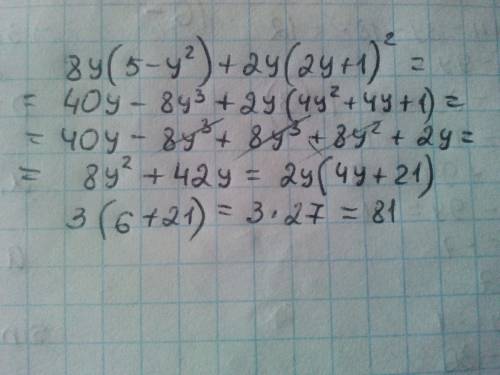 8y(5-y²)+2y(2y+1)²=
= 40y - 8y³ + 2y(4y²+4y+1)=
= 40y - 8y³ + 8y³ + 8y² + 2y=
= 8y² + 42y = 2y(4y+21)
3(6+21) = 3·27 = 81